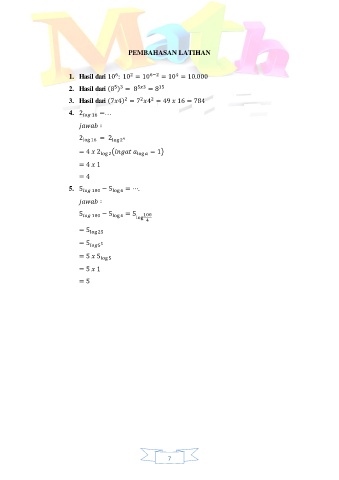 Math
PEMBAHASAN LATIHAN
1. Hasil dari 10⁶: 10² = 10⁶⁻² = 10⁴ = 10.000
2. Hasil dari (8⁵)³ = 8⁵ˣ³ = 8¹⁵
3. Hasil dari (7x4)² = 7²x4² = 49 x 16 = 784
4. 2ₗₒg ₁₆ =…
jawab :
2ₗₒg ₁₆ = 2ₗₒg ₂⁴
= 4 x 2ₗₒg ₂(ingat aₗₒg ₐ = 1)
= 4 x 1
= 4
5. 5ₗₒg ₁₀₀ − 5ₗₒg ₄ = ⋯.
jawab :
5ₗₒg ₁₀₀ − 5ₗₒg ₄ = 5ₗₒg ₁₀₀/₄
= 5ₗₒg ₂₅
= 5ₗₒg ₅⁵
= 5 x 5ₗₒg ₅
= 5 x 1
= 5
7